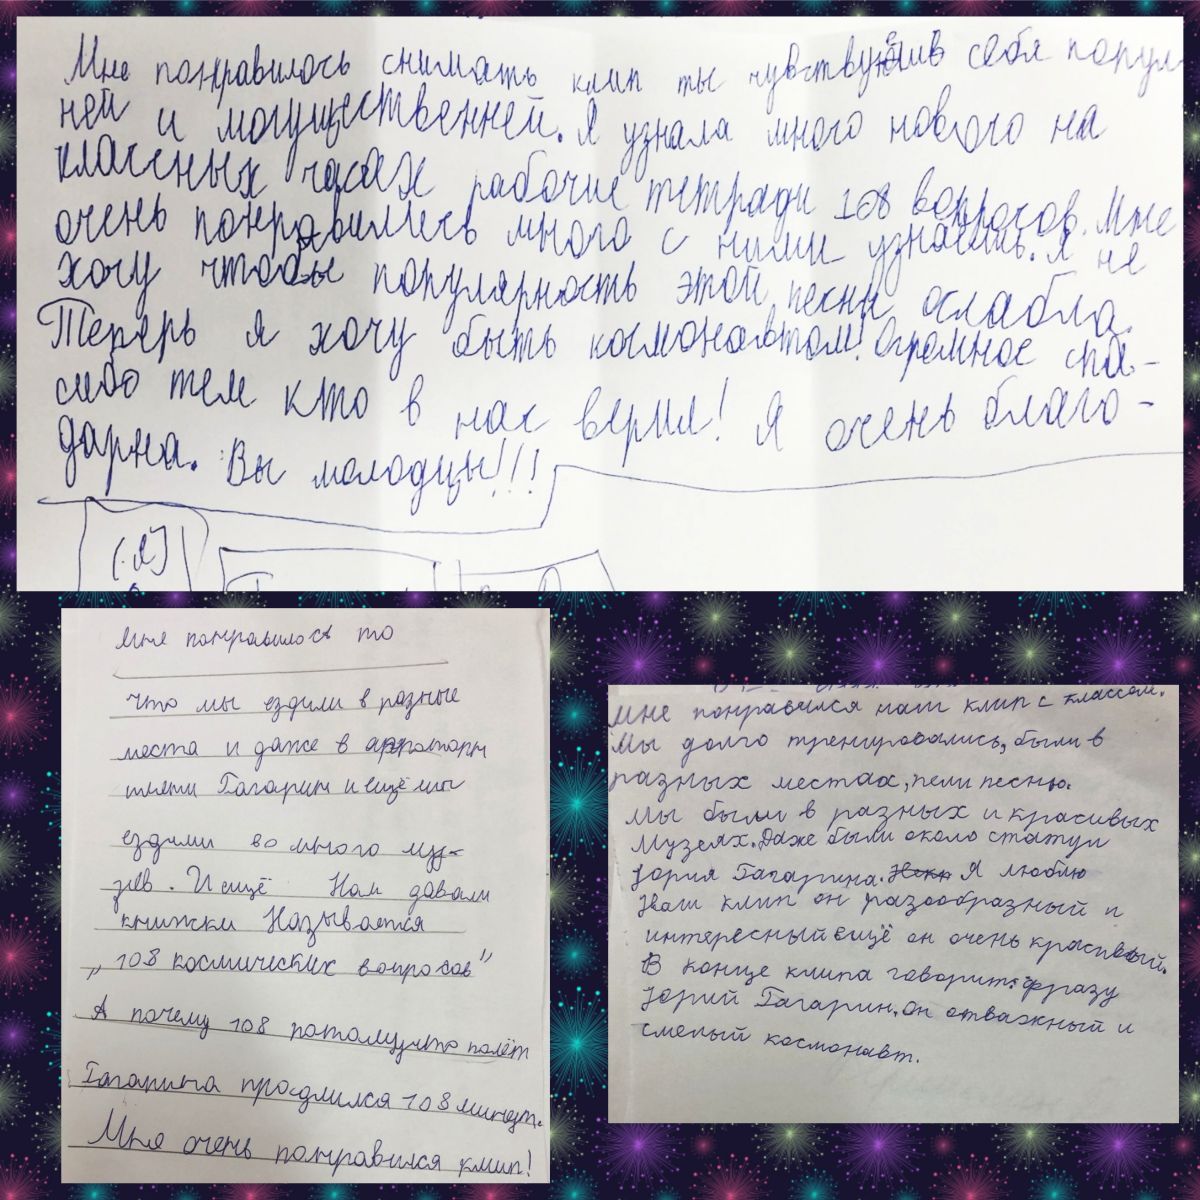 Мне понравилось снимать клип ты чувствуешь себя попул
ней и могущественней. Я узнала много нового на
классных часах рабочие тетради 108 вопросов. Мне
очень понравились много с ними узнаешь. Я не
хочу чтобы популярность этой песни ослабла.
Теперь я хочу быть космонавтом! Огромное спа-
сибо тем кто в нас верил! Я очень благо-
дарна. Вы молодцы!!!
(Я)
Мне понравилось то
что мы ездили в разные
места и даже в
Гагарин и ещё мы
ездили во много му-
зеев. И ещё Нам давали
книжки Называется
„108 космических вопросов"
А почему 108 потомучто полёт
Гагарина продлился 108 минут.
Мне очень понравился клип!
Мне понравился наш клип с классом.
Мы долго тренировались, были в
разных местах, пели песню.
Мы были в разных и красивых
Музеях. Даже были около статуи
Юрия Гагарина. Я люблю
Наш клип он разообразный и
интересный ещё он очень красивый.
В конце клипа говорит: фразу
Юрий Гагарин. Он отважный и
смелый космонавт.